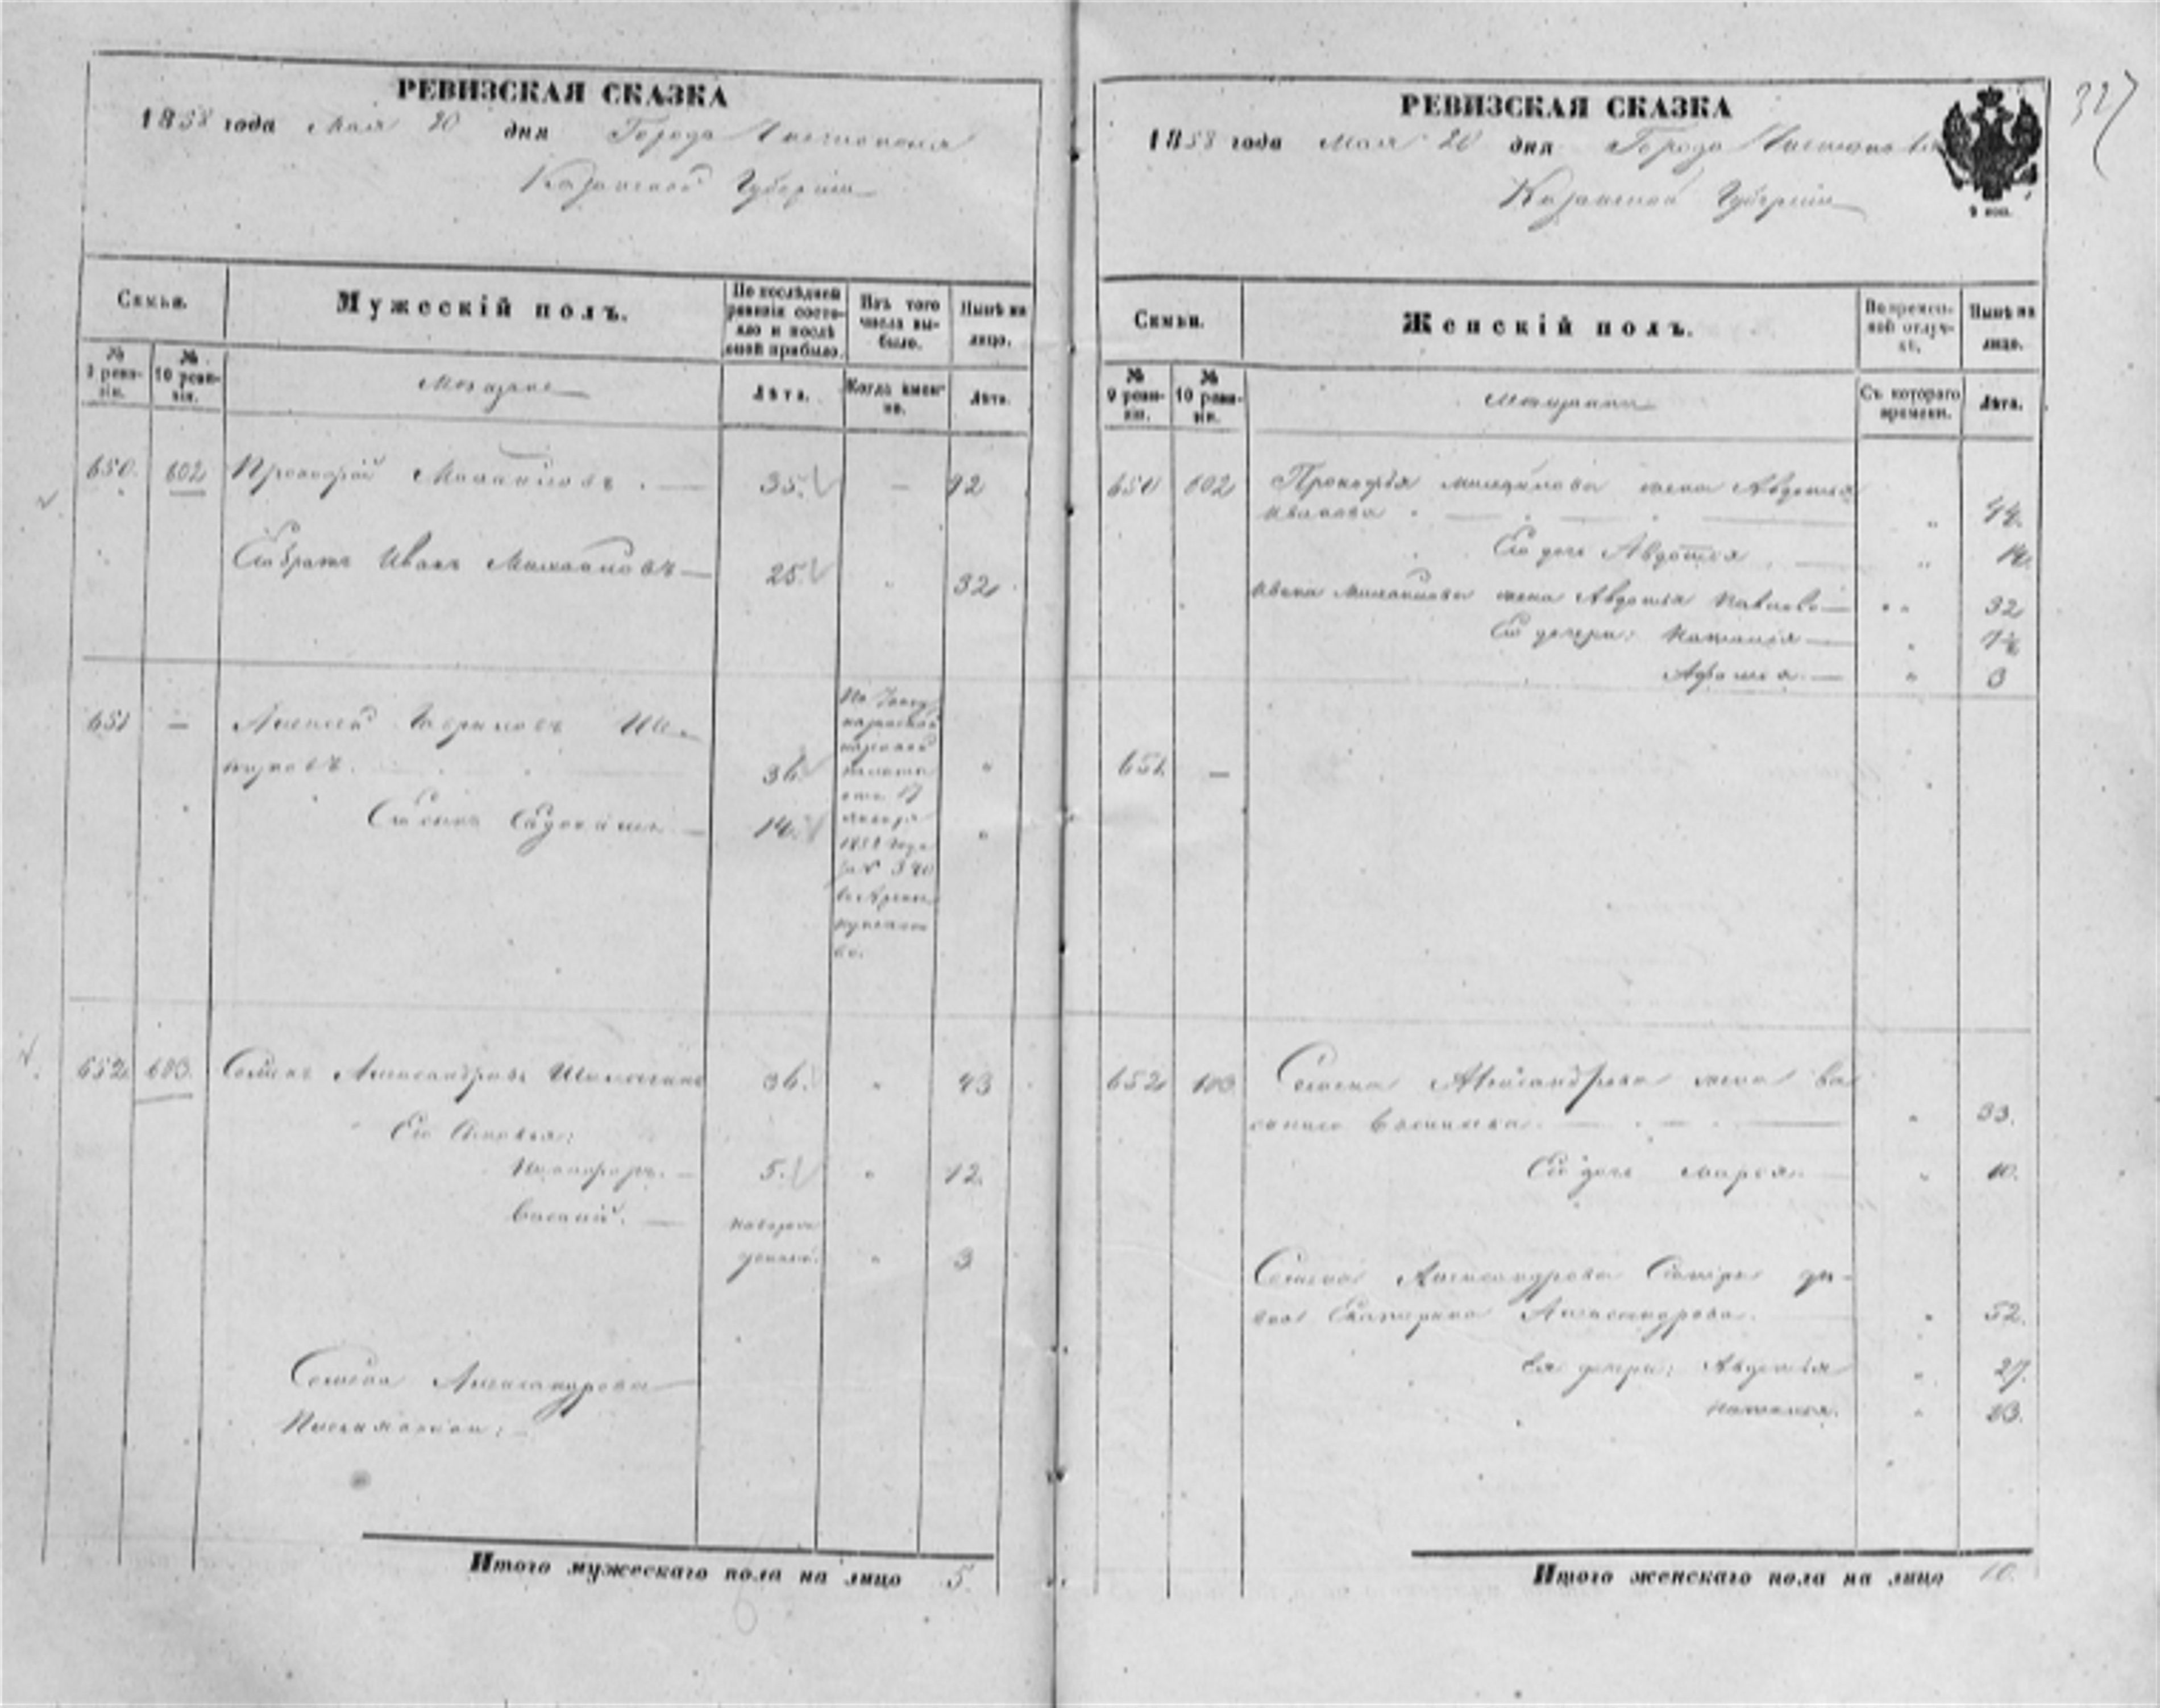 РЕВИЗСКАЯ СКАЗКА
1858 года Мая 20 дня Города Чистополя
Казанской Губерніи
Семьи.
Мужескій полъ.
По послѣдней ревизіи состояло и послѣ оной прибыло.
Изъ того числа выбыло.
Нынѣ на лицо.
№ 9 ревизіи.
№ 10 ревизіи.
Мѣщане
Лѣта.
Когда именно.
Лѣта.
650. 602 Прокофій Михайловъ. — 35. — 42
Его братъ Иванъ Михайловъ — 25. " 32
651 — Алексей Гавриловъ
36. "
Его сынъ Евдокимъ — 14. "
По Указу
казанской
казенной
палаты
отъ 17
января
1858 года
за №
купечест
во.
652 603. Семенъ Александровъ 36. " 43
Его сыновья:
Никифоръ. — 5. " 12.
Василій. — новорож
денный. " 3
Семена Александрова
Итого мужескаго пола на лицо 5.
327
РЕВИЗСКАЯ СКАЗКА
1858 года Мая 20 дня Города Чистополя
Казанской Губерніи
9 коп.
Семьи.
Женскій полъ.
Во временной отлучкѣ.
Нынѣ на лицо.
№ 9 ревизіи.
№ 10 ревизіи.
Мѣщанки
Съ котораго времени.
Лѣта.
650 602 Прокофья Михайлова жена Авдотья
Иванова. — " 44.
Его дочь Авдотья. — " 14.
Ивана Михайлова жена Авдотья Павлова — " 32
Его дочери: Наталья — "
— " 3
651. —
652 603 Семена Александрова жена Ва
силиса Васильева. — " 33.
Его дочь Марья. — " 10.
Семена Александрова Сестра
Екатерина Александрова. " 52.
Ея дочери: Авдотья " 27.
Наталья. " 23.
Итого женскаго пола на лицо 10.